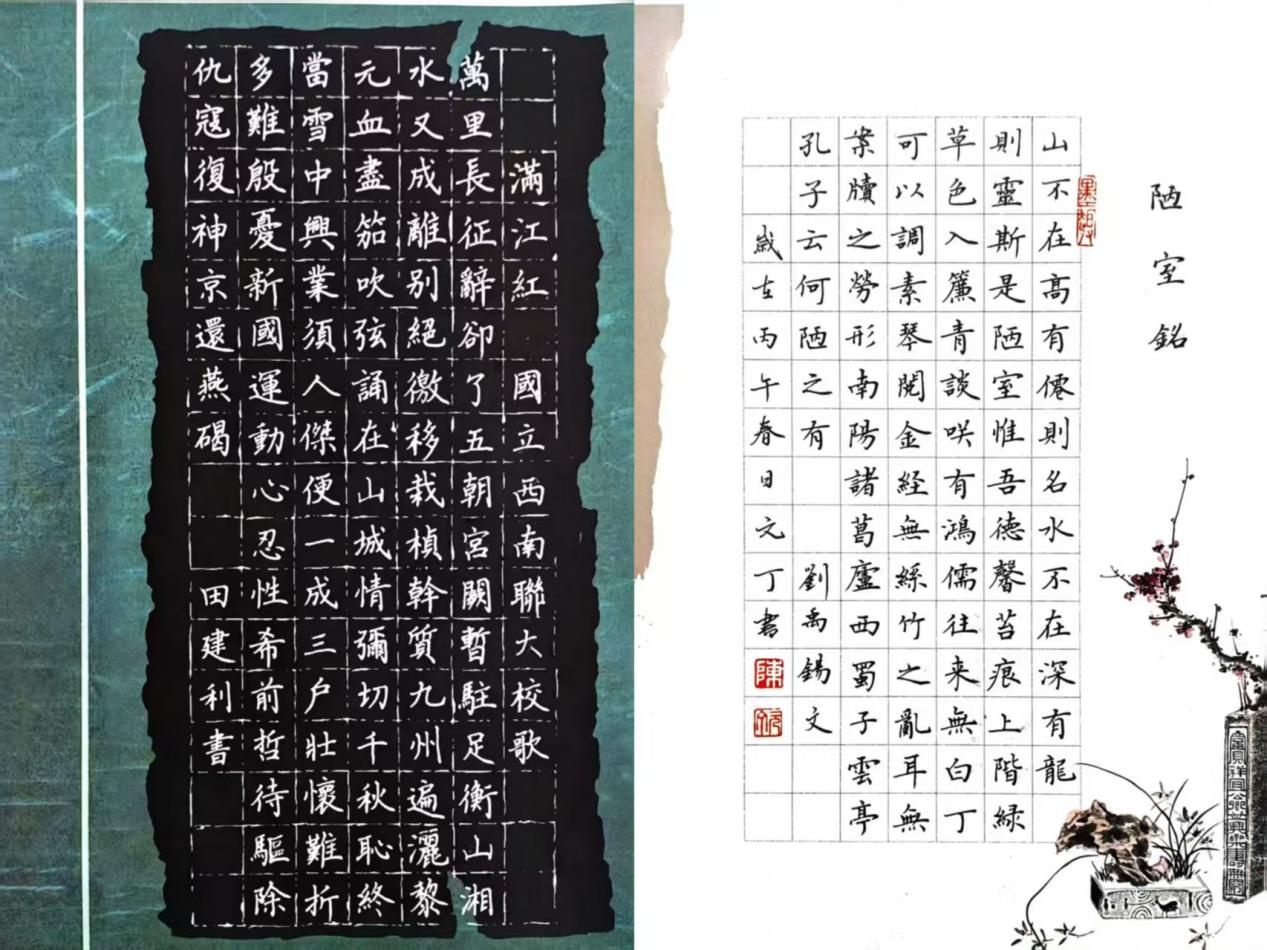 滿江紅 國立西南聯大校歌
萬里長征辭卻了五朝宮闕暫駐足衡山湘
水又成離別絕徼移栽楨幹質九州遍灑黎
元血盡笳吹弦誦在山城情彌切千秋恥終
當雪中興業須人傑便一成三戶壯懷難折
多難殷憂新國運動心忍性希前哲待驅除
仇寇復神京還燕碣 田建利書
陋室銘
山不在高有僊則名水不在深有龍
則靈斯是陋室惟吾德馨苔痕上階緑
草色入簾青談咲有鴻儒往来無白丁
可以調素琴閱金経無絲竹之亂耳無
案牘之勞形南陽諸葛廬西蜀子雲亭
孔子云何陋之有 劉禹錫文
歲在丙午春日元丁書
陳